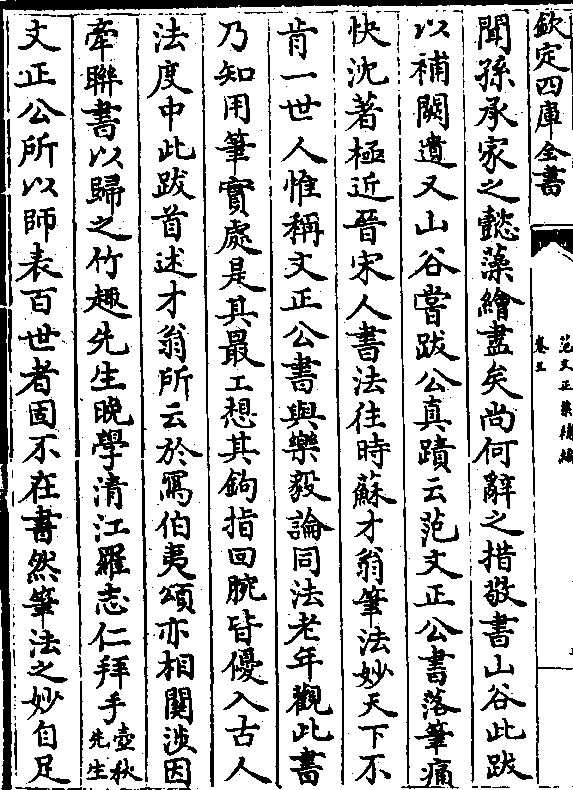 欽定四庫全書
范文正集補編
卷五
聞孫承家之懿藻繪盡矣尚何辭之措敬書山谷此跋
以補闕遺又山谷嘗跋公真蹟云范文正公書落筆痛
快沈著極近晉宋人書法往時蘇才翁筆法妙天下不
肯一世人惟稱文正公書與樂毅論同法老年觀此書
乃知用筆實處是其最工想其鉤指回腕皆優入古人
法度中此跋首述才翁所云於寫伯夷頌亦相關涉因
牽聯書以歸之竹趣先生晚學清江羅志仁拜手壺秋先生
文正公所以師表百世者固不在書然筆法之妙自足